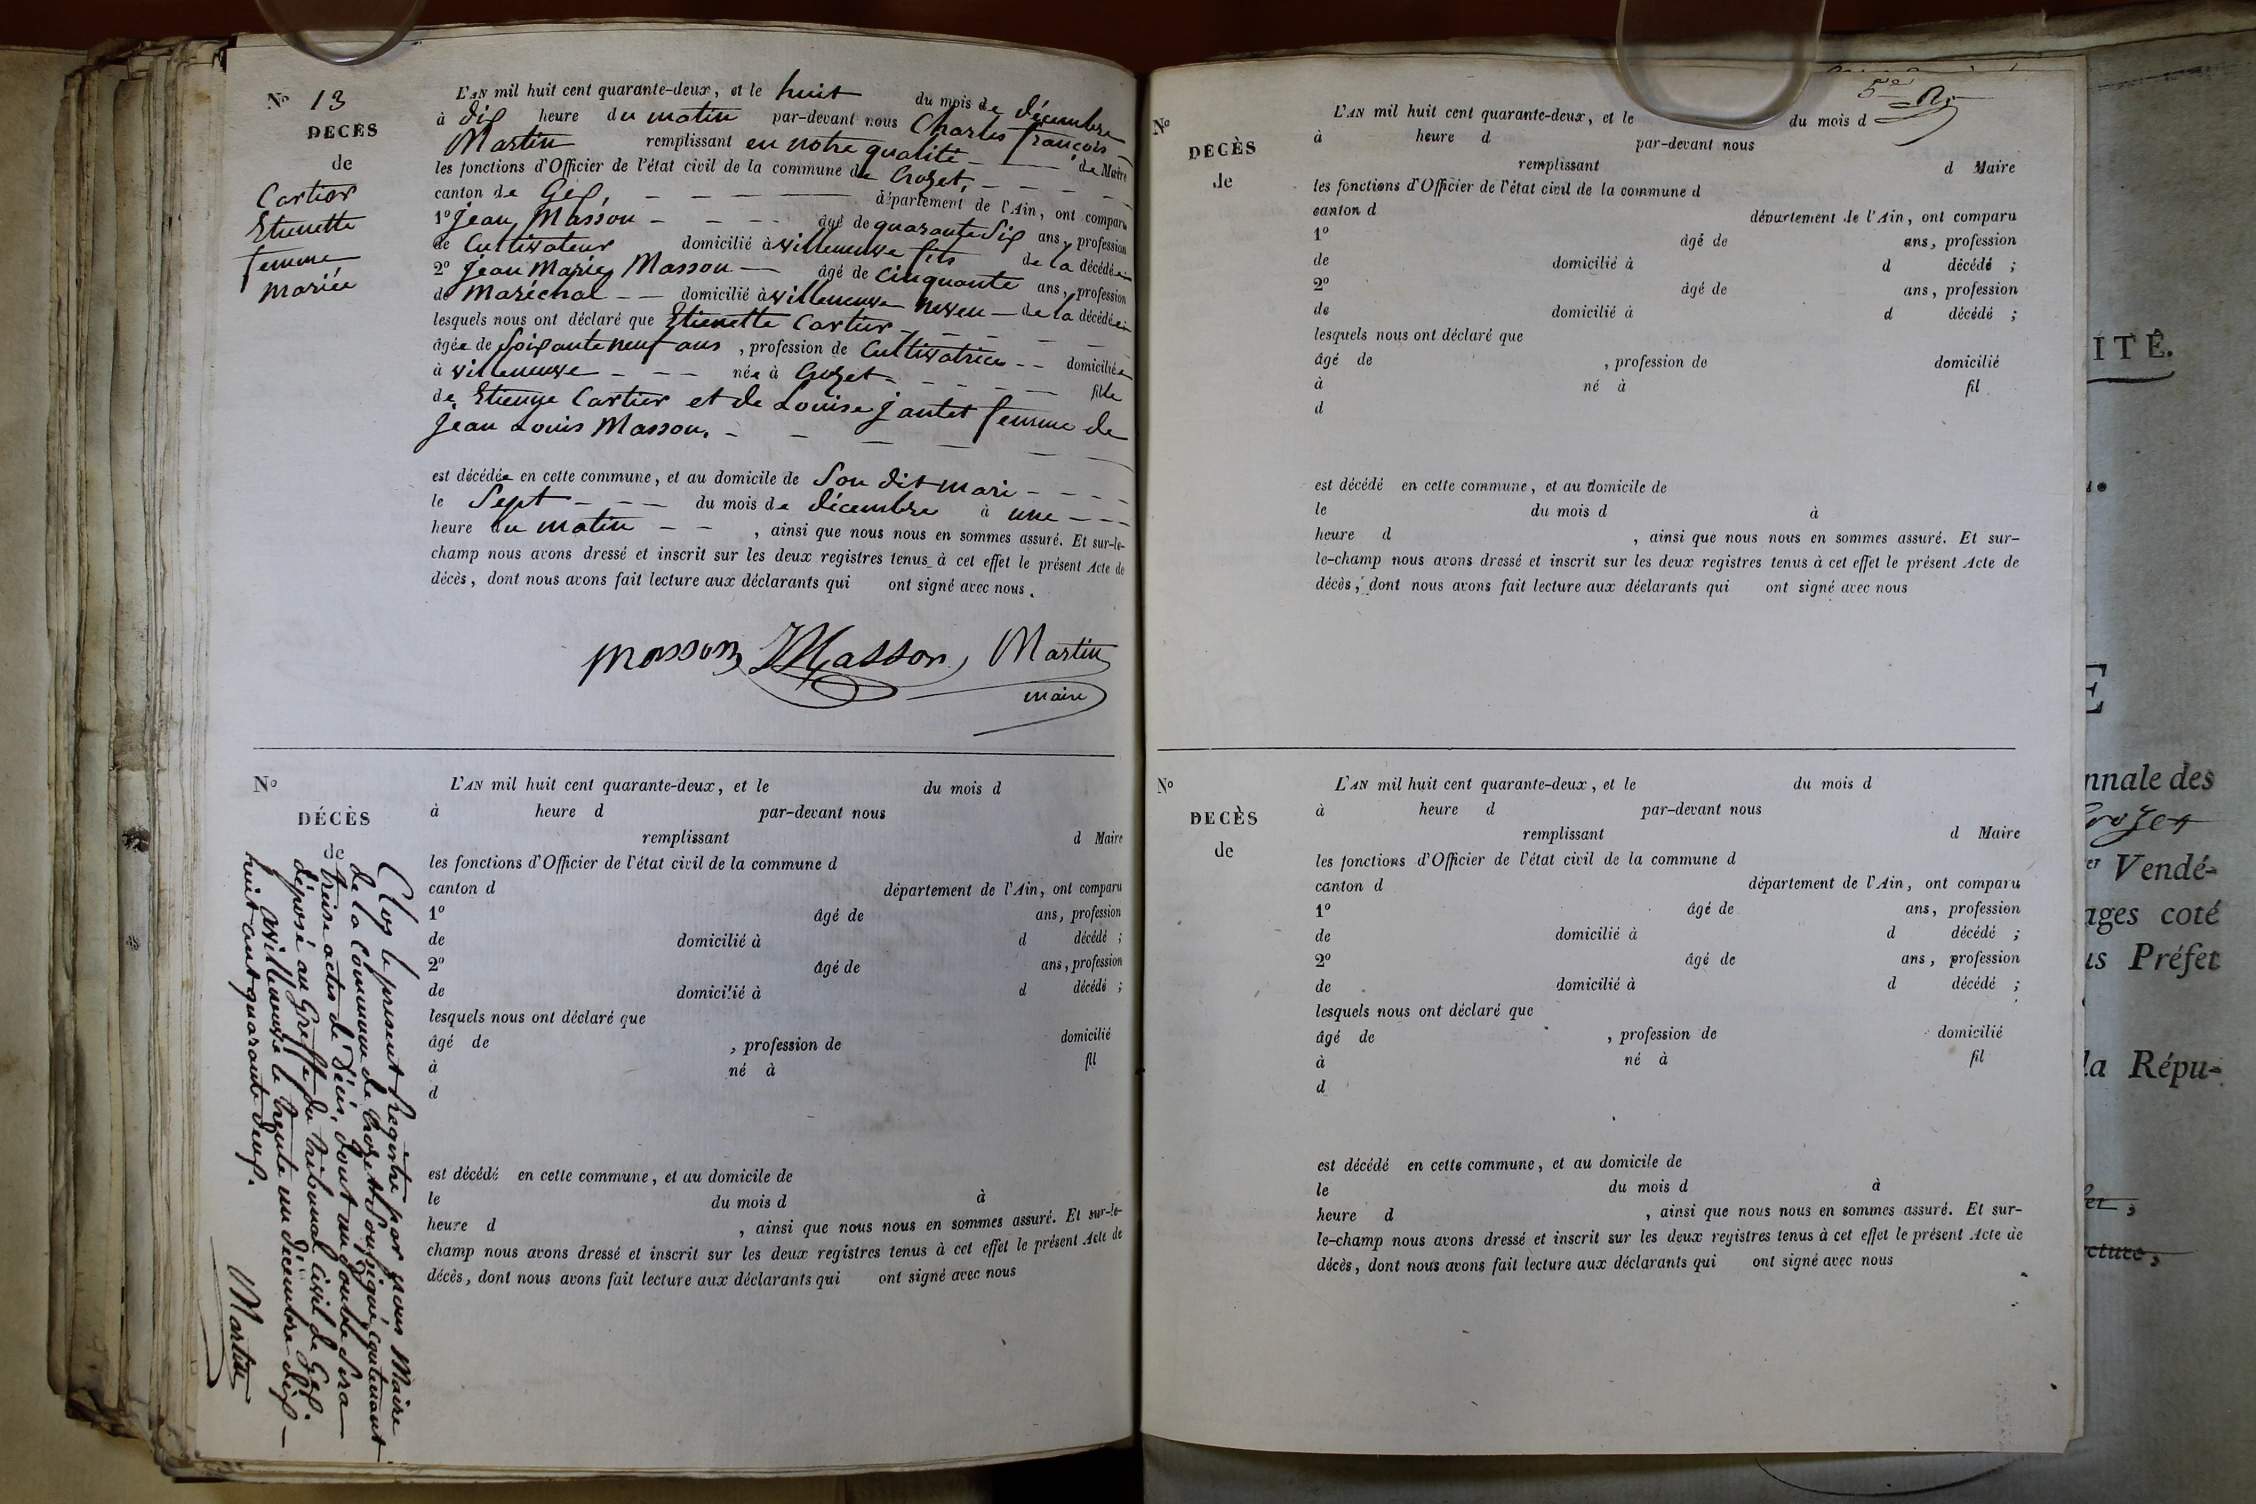 N° 13
DÉCÈS
de
Cartier
Etienette
femme
Mariée
L'AN mil huit cent quarante-deux, et le huit du mois de décembre
à dix heure du matin par-devant nous Charles françois
Martin remplissant en notre qualité de Maire
les fonctions d'Officier de l'état civil de la commune de Crozet,
canton de Gex, département de l'Ain, ont comparu
1° Jean Masson âgé de quarante six ans, profession
de Cultivateur domicilié à villeneuve fils de la décédée
2° Jean Marie Masson âgé de cinquante ans, profession
de Maréchal domicilié à villeneuve neveu de la décédée
lesquels nous ont déclaré que Etienette Cartier
âgée de soixante neuf ans, profession de Cultivatrice domiciliée
à villeneuve née à Crozet fille
de Etienne Cartier et de Louise jantet femme de
Jean Louis Masson.
est décédée en cette commune, et au domicile de son dit mari
le sept du mois de décembre à une
heure du matin, ainsi que nous nous en sommes assuré. Et sur-le-
champ nous avons dressé et inscrit sur les deux registres tenus à cet effet le présent Acte de
décès, dont nous avons fait lecture aux déclarants qui ont signé avec nous.
Masson JMasson Martin
maire
N°
DÉCÈS
de
L'AN mil huit cent quarante-deux, et le du mois d
à heure d par-devant nous
remplissant d Maire
les fonctions d'Officier de l'état civil de la commune d
canton d département de l'Ain, ont comparu
1° âgé de ans, profession
de domicilié à d décédé ;
2° âgé de ans, profession
de domicilié à d décédé ;
lesquels nous ont déclaré que
âgé de , profession de domicilié
à né à fil
d
est décédé en cette commune, et au domicile de
le du mois d à
heure d , ainsi que nous nous en sommes assuré. Et sur-le-
champ nous avons dressé et inscrit sur les deux registres tenus à cet effet le présent Acte de
décès, dont nous avons fait lecture aux déclarants qui ont signé avec nous
Clos le présent Registre par nous Maire
de la Commune de Crozet soussigné, contenant
treize actes de Décès, dont un double sera
déposé au Greffe du tribunal Civil de Gex.
Villeneuve le trente un décembre dix
huit cent quarante deux.
Martin
5e
N°
DÉCÈS
de
L'AN mil huit cent quarante-deux, et le du mois d
à heure d par-devant nous
remplissant d Maire
les fonctions d'Officier de l'état civil de la commune d
canton d département de l'Ain, ont comparu
1° âgé de ans, profession
de domicilié à d décédé ;
2° âgé de ans, profession
de domicilié à d décédé ;
lesquels nous ont déclaré que
âgé de , profession de domicilié
à né à fil
d
est décédé en cette commune, et au domicile de
le du mois d à
heure d , ainsi que nous nous en sommes assuré. Et sur-
le-champ nous avons dressé et inscrit sur les deux registres tenus à cet effet le présent Acte de
décès, dont nous avons fait lecture aux déclarants qui ont signé avec nous
N°
DÉCÈS
de
L'AN mil huit cent quarante-deux, et le du mois d
à heure d par-devant nous
remplissant d Maire
les fonctions d'Officier de l'état civil de la commune d
canton d département de l'Ain, ont comparu
1° âgé de ans, profession
de domicilié à d décédé ;
2° âgé de ans, profession
de domicilié à d décédé ;
lesquels nous ont déclaré que
âgé de , profession de domicilié
à né à fil
d
est décédé en cette commune, et au domicile de
le du mois d à
heure d , ainsi que nous nous en sommes assuré. Et sur-
le-champ nous avons dressé et inscrit sur les deux registres tenus à cet effet le présent Acte de
décès, dont nous avons fait lecture aux déclarants qui ont signé avec nous
ITÉ.
E
nnale des
Crozet
er Vendé-
ages coté
us Préfet
la Répu-
cture,